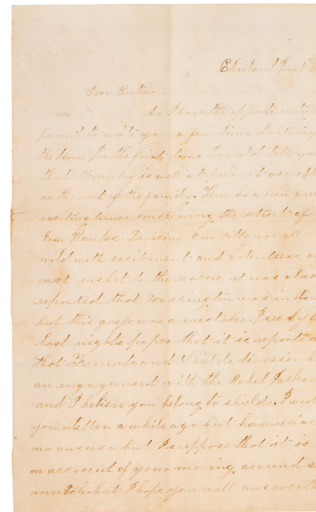 Cleveland June
Dear Brother
As I have the opportunity
permit to write you a few lines I
the time In the first place I will tell you
that Franky is well at present as
as the rest of the family. There has been
exciting times concerning the retreat of
Gen. Banks Division Our city was all
wild with excitement and volunteers
to the rescue it was also
reported that Washington was in
but this was a mistake. I see by
last nights paper that it is reported
that Fremonts and Shields division
an engagement with the Rebel Jackson
and I believe you belong to shields. I wrote
you a letter a while ago but have received
no answer but I suppose that it is
on account of your moving around
much but I hope you will answer